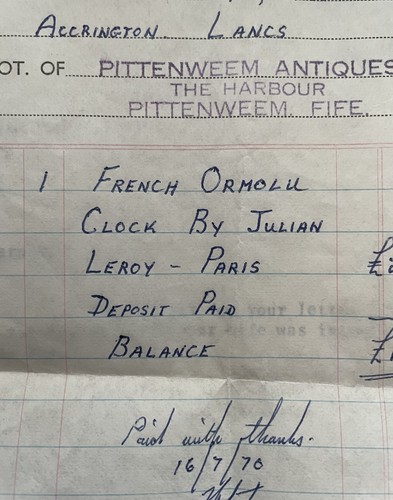 ACCRINGTON. LANCS
OT. OF PITTENWEEM ANTIQUES
THE HARBOUR
PITTENWEEM. FIFE.
1 FRENCH ORMOLU
CLOCK BY JULIAN
LEROY - PARIS £
DEPOSIT PAID
BALANCE £
Paid with thanks.
16/7/70